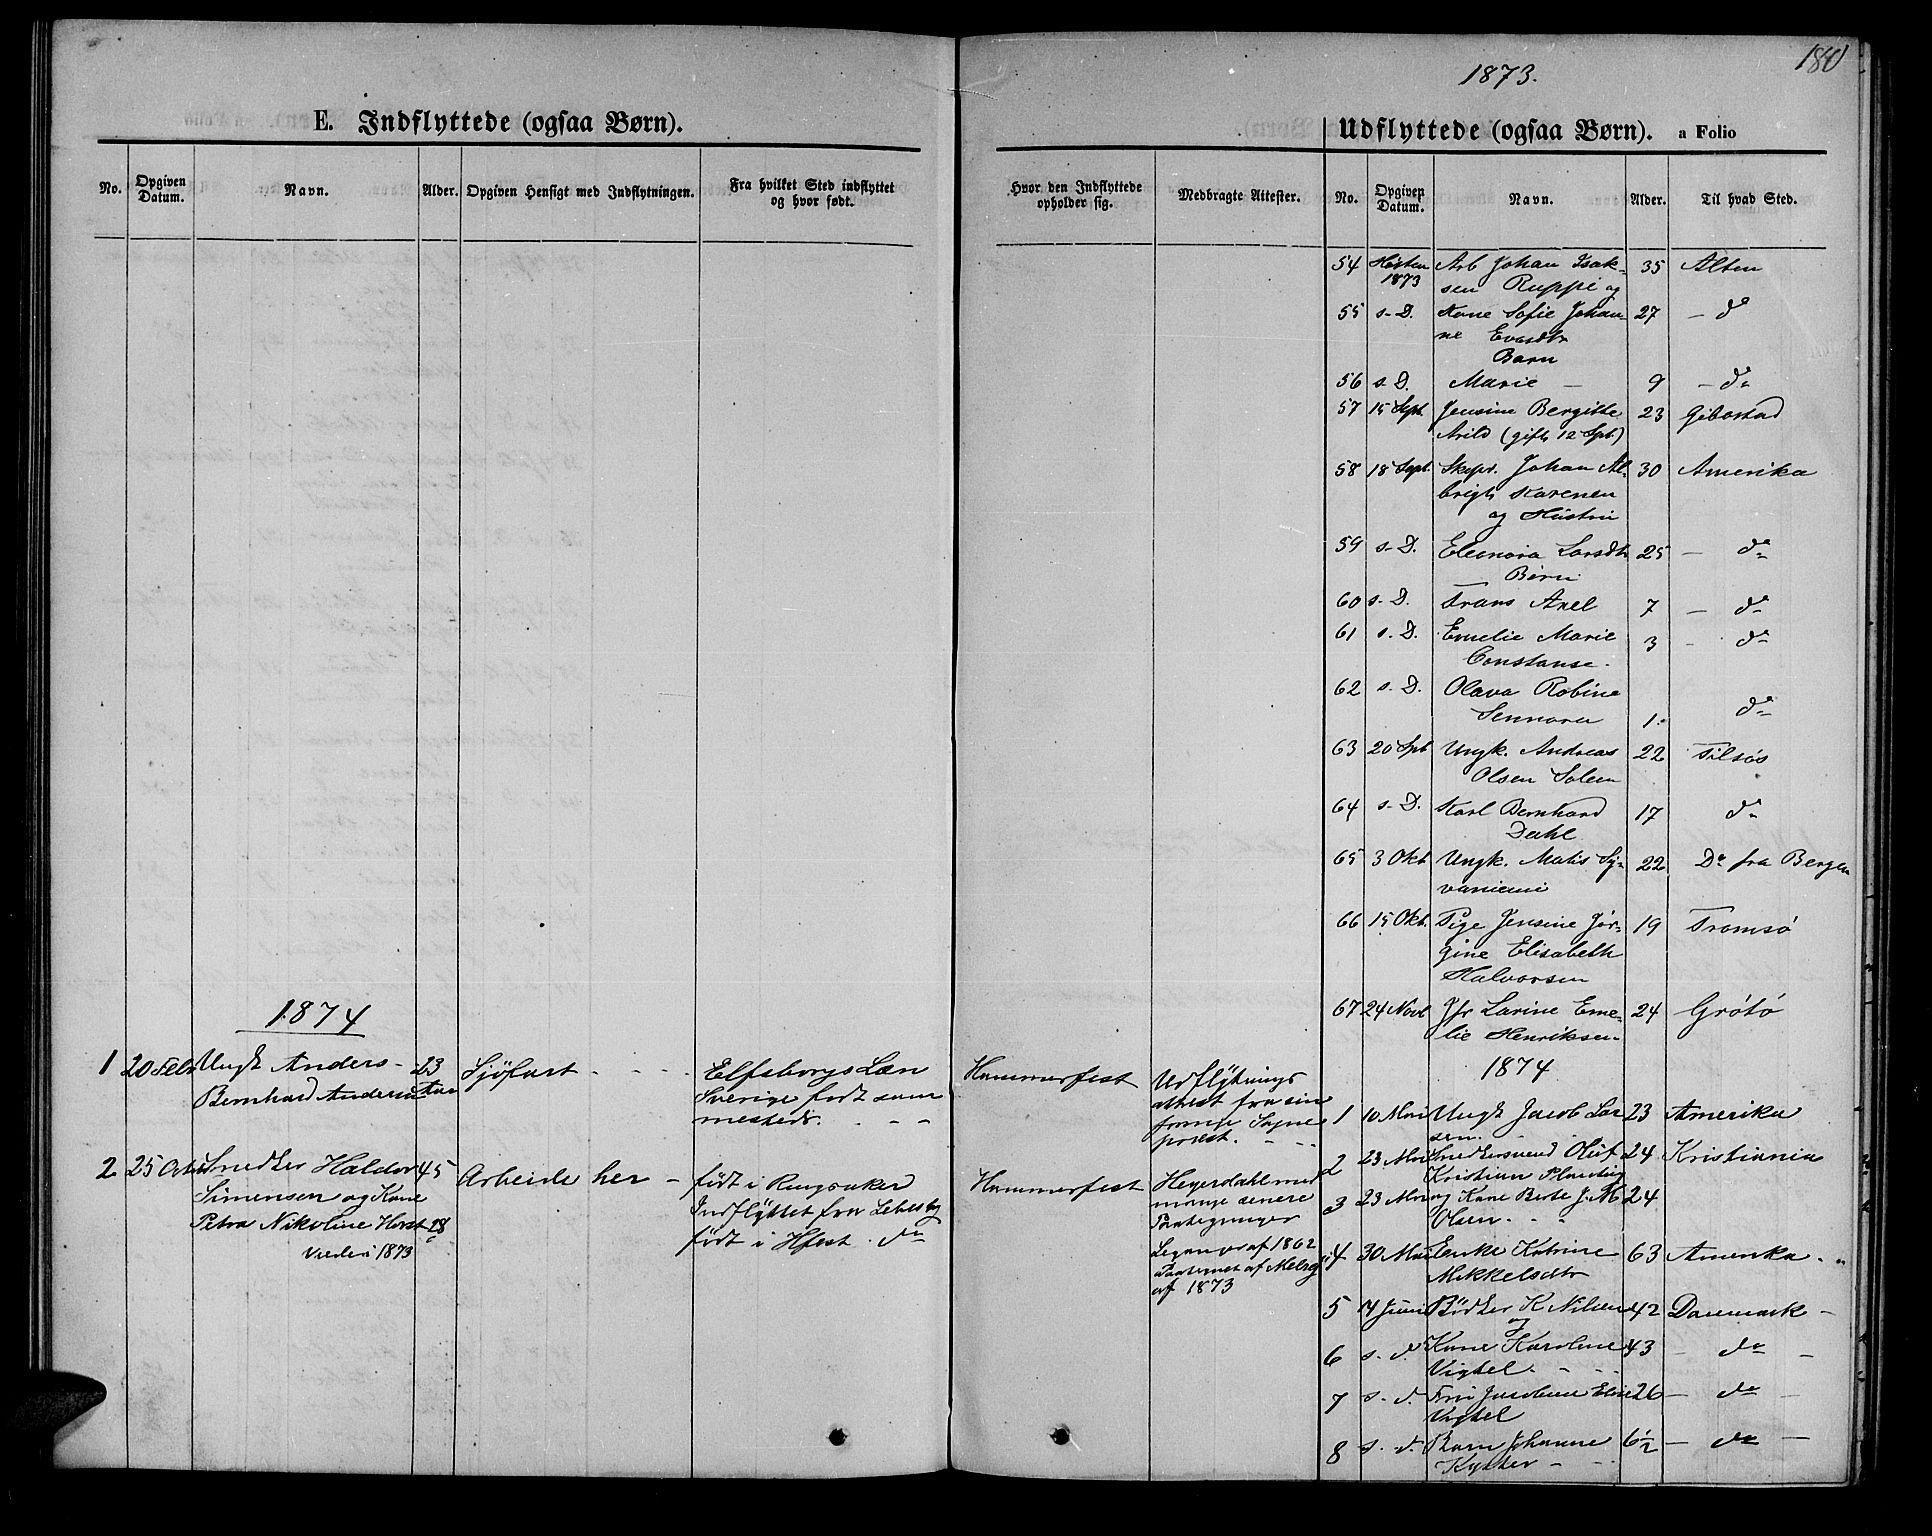 180
1873.
E. Indflyttede (ogsaa Børn).
No.
Opgiven Datum.
Navn.
Alder.
Opgiven Hensigt med Indflytningen.
Fra hvilket Sted indflyttet og hvor født.
Hvor den Indflyttede opholder sig.
Medbragte Attester.
1874
1 20 Feb Ungk Anders 23 Sjöfart - - - - Elfsborgs Læn Hammerfest Udflytnings
Bernhard Andersen Aar Sverige født sam attest fra sin
mesteds. - - - forrige Sogne
prest. - - -
2 25 Smed Haldor 45 Arbeide her - født i Ringsaker Hammerfest Heyerdahl med
Simensen og Kone Indflyttet fra Lebesby mange senere
Petra Nikoline Horst 28 født i Hfest. do Paategninger
Viede i 1873 af 1862
af 1873
Udflyttede (ogsaa Børn). a Folio
No.
Opgiven Datum.
Navn.
Alder.
Til hvad Sted.
54 Høsten Arb Johan Isak- 35 Alten
1873 sen Ruppi og
55 s. D. Kone Sofie Johan- 27 - do
ne Evardtr
Barn
56 s. D. Marie - 9 - do
57 15 Sept. Jensine Bergitte 23 Gibostad
Arild (gift 12 Spt.)
58 18 Sept. Skpr. Johan Al- 30 Amerika
brigt Karenen
og Hustru
59 s. D. Eleonora Larsdtr 25 - do
Børn
60 s. D. Frans Axel 7 - do
61 s. D. Emelie Marie 3 - do
Constanse.
62 s. D. Olava Robine
Sennora 1. do
63 20 Spt Ungk. Andreas 22 Tilsøs
Olsen Solem
64 s. D. Karl Bernhard 17 do
Dahl
65 3 Okt Ungk. Matis Sy- 22 Do fra Bergen
vaniemi
66 15 Okt. Pige Jensine Jør- 19 Tromsø
gine Elisabeth
Halvorsen
67 24 Novb Jfr Larine Eme- 24 Grøtø
lie Henriksen
1874
1 10 Mai Ungk Jacob Lar 23 Amerika
sen.
2 23 Mai Smedesvend Oluf 24 Kristiania
Kristian
3 23 Mai og Kone Berte J. M. 24
Olsen. - -
4 30 Mai Enke Katrine 63 Amerika - "
Mikkelsdtr
5 14 Juni Bødker K Nilsen 42 Danmark -
og
6 s. d. Kone Karoline 43 - do -
Vigtel. - -
7 s. d. Frøi Elise 26 - do -
Vigtel
8 s. d. Barn Johanne 6½ - do -